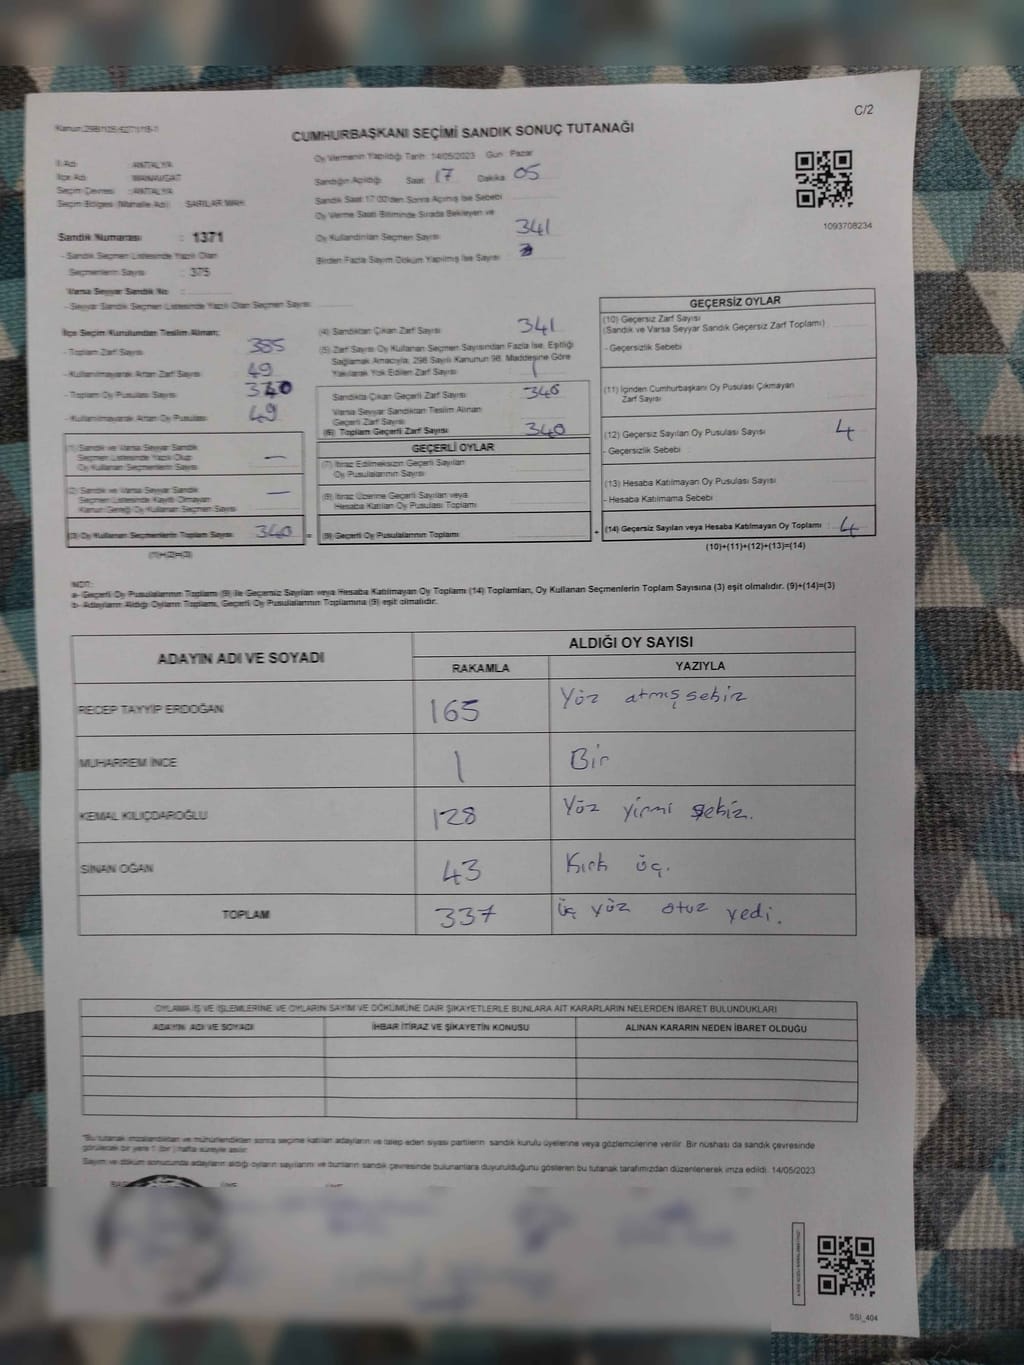 C/2
CUMHURBAŞKANI SEÇİMİ SANDIK SONUÇ TUTANAĞI
İl Adı : ANTALYA
İlçe Adı : MANAVGAT
Seçim Çevresi : ANTALYA
Seçim Bölgesi (Mahalle Adı) SARILAR MAH.
Sandık Numarası : 1371
- Sandık Seçmen Listesinde Yazılı Olan
Seçmenlerin Sayısı : 375
Varsa Seyyar Sandık No :
- Seyyar Sandık Seçmen Listesinde Yazılı Olan Seçmen Sayısı
Oy Vermenin Yapıldığı Tarih: 14/05/2023 Gün: Pazar
Sandığın Açıldığı Saat 17 Dakika 05
Sandık Saat 17:00'den Sonra Açılmış İse Sebebi
Oy Verme Saati Bitiminde Sırada Bekleyen ve
Oy Kullandırılan Seçmen Sayısı 341
Birden Fazla Sayım Döküm Yapılmış İse Sayısı
1093708234
İlçe Seçim Kurulundan Teslim Alınan;
- Toplam Zarf Sayısı 385
- Kullanılmayarak Artan Zarf Sayısı 49
- Toplam Oy Pusulası Sayısı
- Kullanılmayarak Artan Oy Pusulası 49
(1) Sandık ve Varsa Seyyar Sandık
Seçmen Listesinde Yazılı Olup
Oy Kullanan Seçmenlerin Sayısı —
(2) Sandık ve Varsa Seyyar Sandık
Seçmen Listesinde Kayıtlı Olmayan
Kanun Gereği Oy Kullanan Seçmen Sayısı —
(3) Oy Kullanan Seçmenlerin Toplam Sayısı 340 =
(1)+(2)=(3)
(4) Sandıktan Çıkan Zarf Sayısı 341
(5) Zarf Sayısı Oy Kullanan Seçmen Sayısından Fazla İse, Eşitliği
Sağlamak Amacıyla, 298 Sayılı Kanunun 98. Maddesine Göre
Yakılarak Yok Edilen Zarf Sayısı 1
Sandıkta Çıkan Geçerli Zarf Sayısı 340
Varsa Seyyar Sandıktan Teslim Alınan
Geçerli Zarf Sayısı
(6) Toplam Geçerli Zarf Sayısı 340
GEÇERLİ OYLAR
(7) İtiraz Edilmeksizin Geçerli Sayılan
Oy Pusulalarının Sayısı
(8) İtiraz Üzerine Geçerli Sayılan veya
Hesaba Katılan Oy Pusulası Toplamı
(9) Geçerli Oy Pusulalarının Toplamı +
GEÇERSİZ OYLAR
(10) Geçersiz Zarf Sayısı
(Sandık ve Varsa Seyyar Sandık Geçersiz Zarf Toplamı)
- Geçersizlik Sebebi
(11) İçinden Cumhurbaşkanı Oy Pusulası Çıkmayan
Zarf Sayısı
(12) Geçersiz Sayılan Oy Pusulası Sayısı 4
- Geçersizlik Sebebi
(13) Hesaba Katılmayan Oy Pusulası Sayısı
- Hesaba Katılmama Sebebi
(14) Geçersiz Sayılan veya Hesaba Katılmayan Oy Toplamı : 4
(10)+(11)+(12)+(13)=(14)
NOT:
a- Geçerli Oy Pusulalarının Toplamı (9) ile Geçersiz Sayılan veya Hesaba Katılmayan Oy Toplamı (14) Toplamları, Oy Kullanan Seçmenlerin Toplam Sayısına (3) eşit olmalıdır. (9)+(14)=(3)
b- Adayların Aldığı Oyların Toplamı, Geçerli Oy Pusulalarının Toplamına (9) eşit olmalıdır.
ADAYIN ADI VE SOYADI ALDIĞI OY SAYISI
RAKAMLA YAZIYLA
RECEP TAYYİP ERDOĞAN 165 Yüz atmış sekiz
MUHARREM İNCE 1 Bir
KEMAL KILIÇDAROĞLU 128 Yüz yirmi sekiz.
SİNAN OĞAN 43 Kırk üç.
TOPLAM 337 üç yüz otuz yedi.
OYLAMA İŞ VE İŞLEMLERİNE VE OYLARIN SAYIM VE DÖKÜMÜNE DAİR ŞİKAYETLERLE BUNLARA AİT KARARLARIN NELERDEN İBARET BULUNDUKLARI
ADAYIN ADI VE SOYADI İHBAR İTİRAZ VE ŞİKAYETİN KONUSU ALINAN KARARIN NEDEN İBARET OLDUĞU
*Bu tutanak imzalandıktan ve mühürlendikten sonra seçime katılan adayların ve talep eden siyasi partilerin sandık kurulu üyelerine veya gözlemcilerine verilir. Bir nüshası da sandık çevresinde
görülecek bir yere 1 (bir) hafta süreyle asılır.
Sayım ve döküm sonucunda adayların aldığı oyların sayılarını ve bunların sandık çevresinde bulunanlara duyurulduğunu gösteren bu tutanak tarafımızdan düzenlenerek imza edildi. 14/05/2023
SSI_404